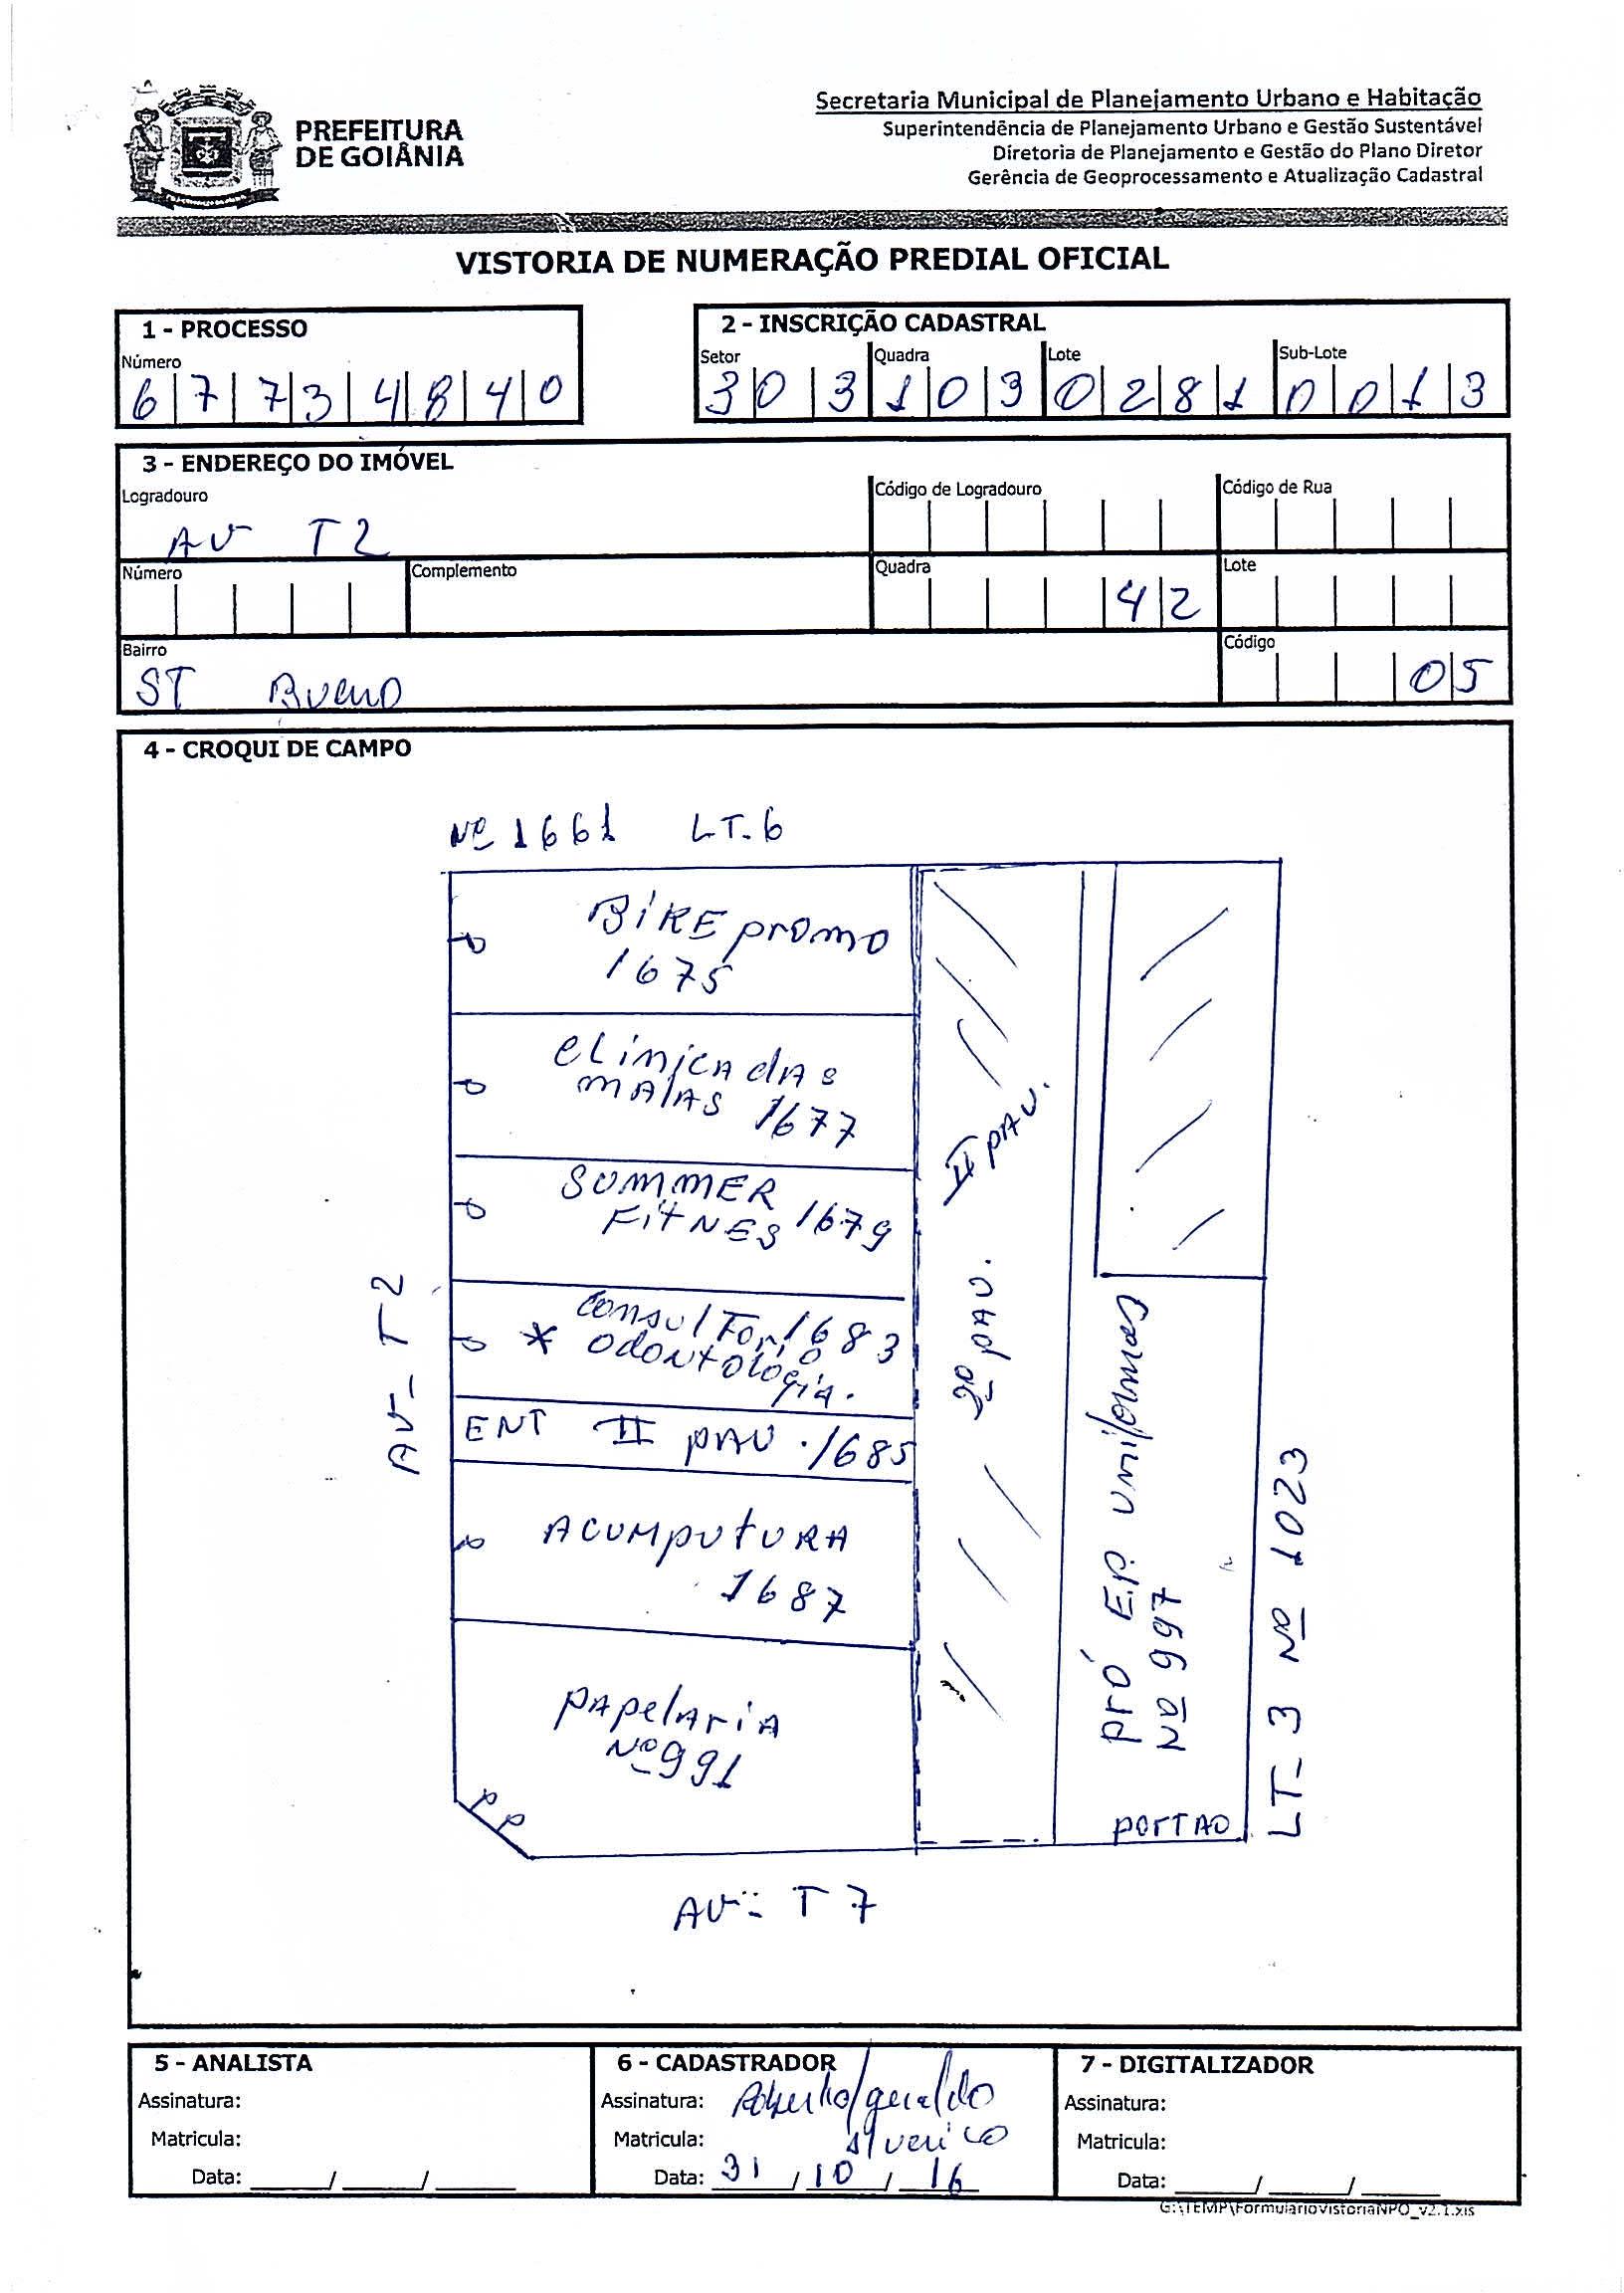 PREFEITURA
DE GOIÂNIA
Secretaria Municipal de Planejamento Urbano e Habitação
Superintendência de Planejamento Urbano e Gestão Sustentável
Diretoria de Planejamento e Gestão do Plano Diretor
Gerência de Geoprocessamento e Atualização Cadastral
VISTORIA DE NUMERAÇÃO PREDIAL OFICIAL
1 - PROCESSO
Número
6 7 7 3 4 8 4 0
2 - INSCRIÇÃO CADASTRAL
Setor Quadra Lote Sub-Lote
3 0 3 1 0 3 0 2 8 1 0 0 1 3
3 - ENDEREÇO DO IMÓVEL
Logradouro Código de Logradouro Código de Rua
AV T2
Número Complemento Quadra Lote
42
Bairro Código
ST BUENO 05
4 - CROQUI DE CAMPO
Nº 1661 LT. 6
BIKE promo
1675
CLINICA DAS
MALAS 1677
SUMMER
FITNES 1679
CONSULTORIO 1683
* ODONTOLOGIA.
ENT II PAV. 1685
ACUMPUTURA
1687
PAPELARIA
Nº 991
II PAV.
2º PAV.
PRÓ E.P. uniformes
Nº 997
PORTAO
LT- 3 Nº 1023
AV- T2
AV- T7
5 - ANALISTA
Assinatura:
Matricula:
Data: / /
6 - CADASTRADOR
Assinatura: /geraldo
Matricula:
Data: 31 / 10 / 16
7 - DIGITALIZADOR
Assinatura:
Matricula:
Data: / /
G:\TEMP\FormularioVistoriaNPO_v2.1.xls